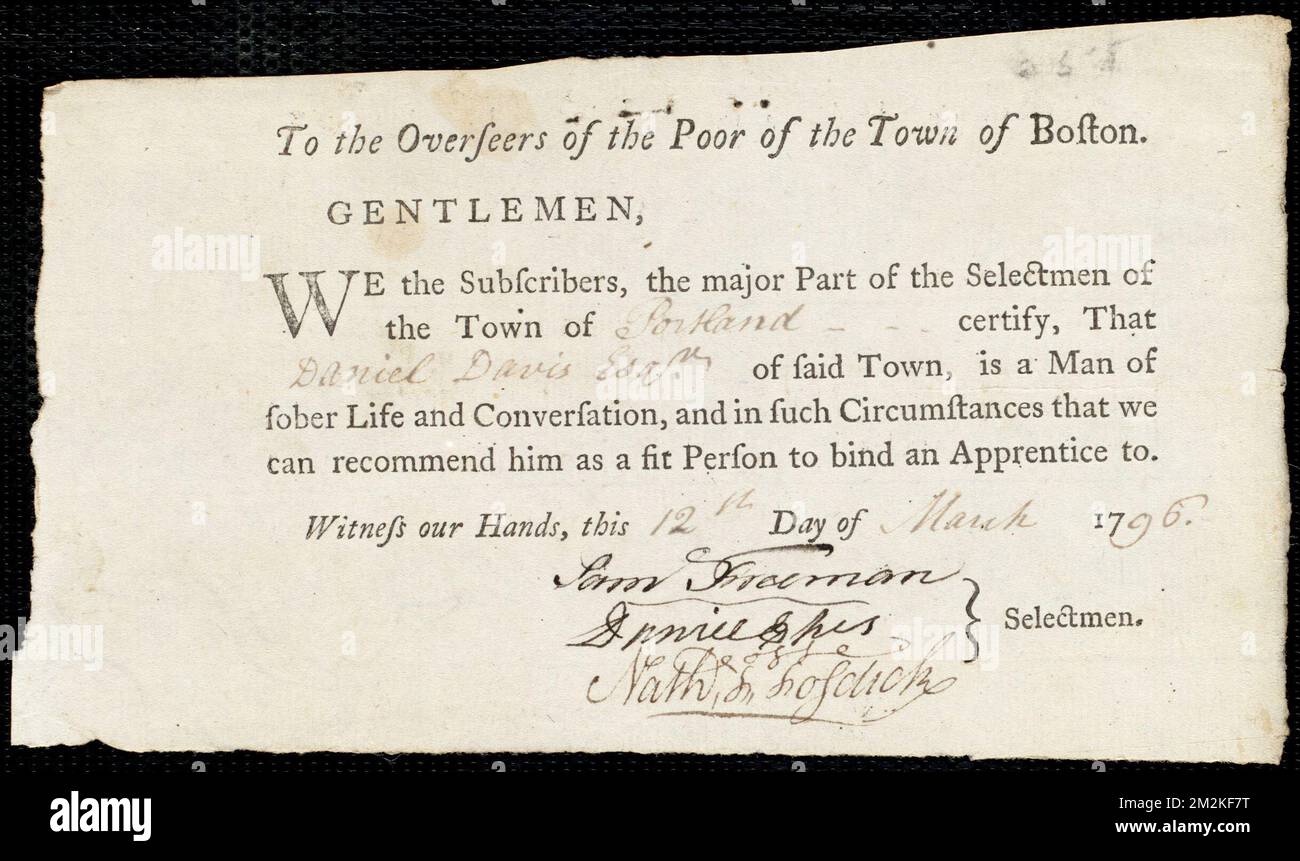 To the Overſeers of the Poor of the Town of Boſton.
GENTLEMEN,
WE the Subſcribers, the major Part of the Selectmen of
the Town of Portland - - - certify, That
Daniel Davis Esqr. of ſaid Town, is a Man of
ſober Life and Converſation, and in ſuch Circumſtances that we
can recommend him as a fit Perſon to bind an Apprentice to.
Witneſs our Hands, this 12th Day of March 1796.
Sam Freeman
Daniel
Nathl. F. Fosdick
Selectmen.
alamy
alamy
Image ID: 2M2KF7T
www.alamy.com